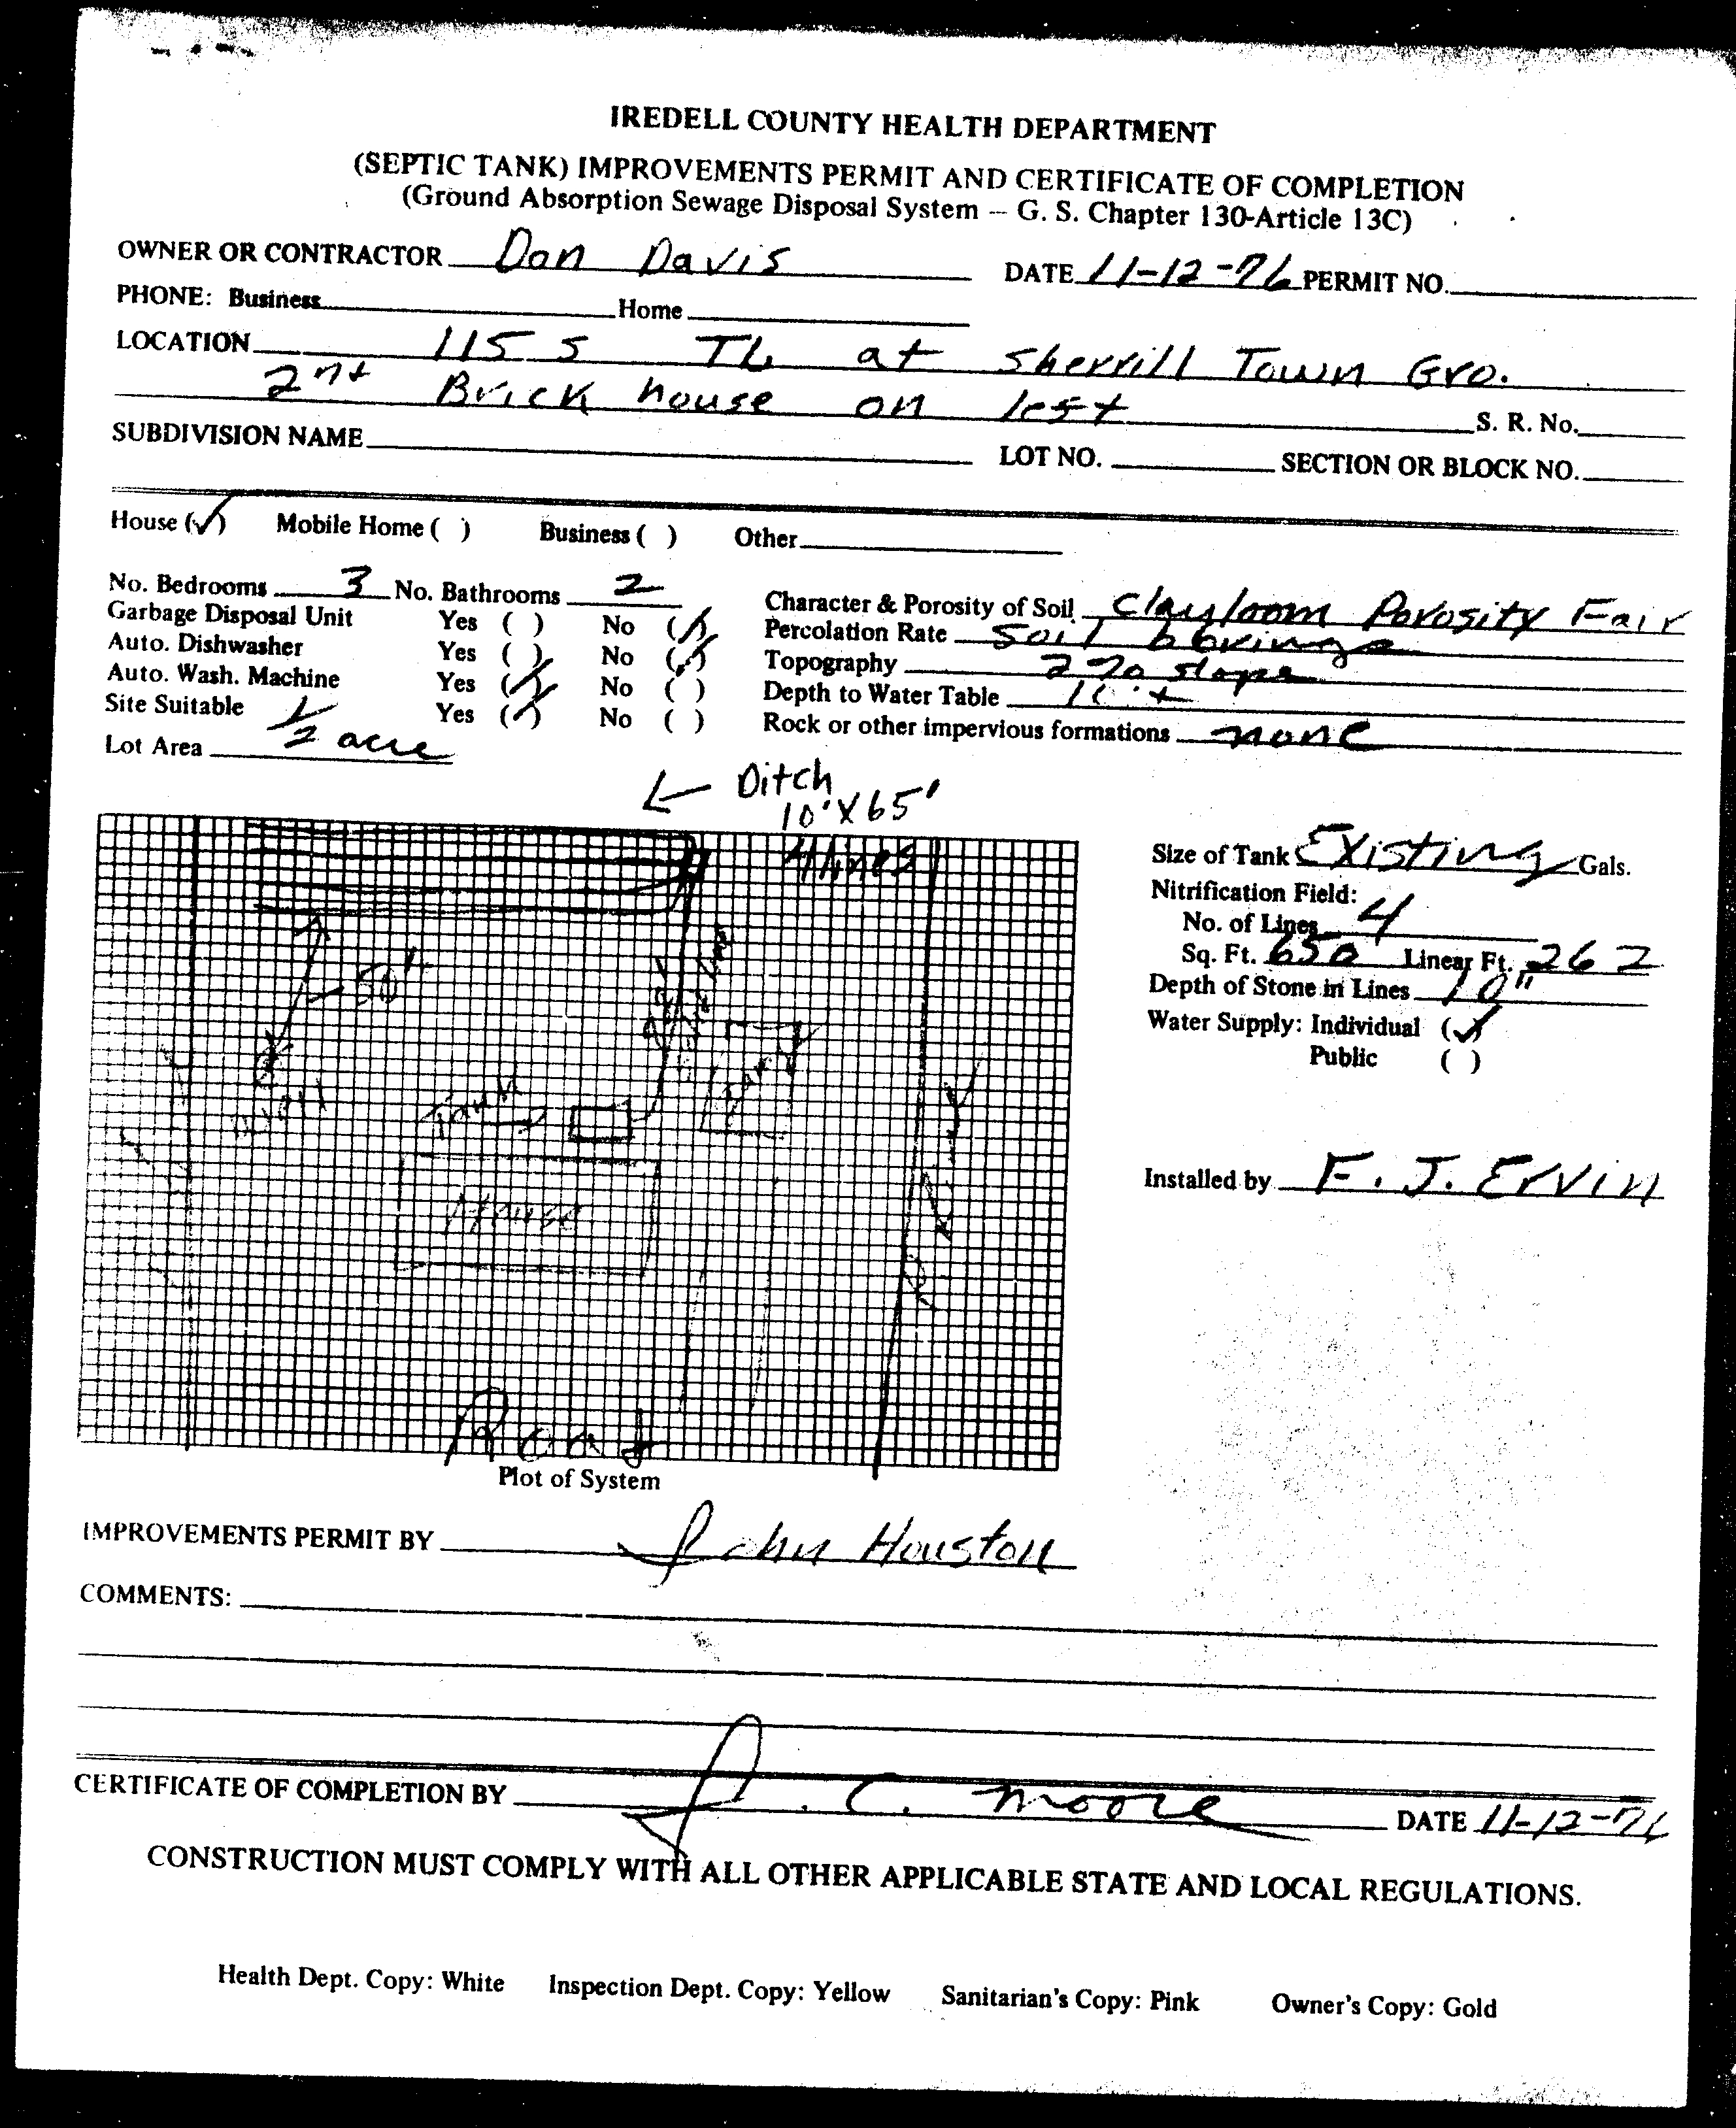 IREDELL COUNTY HEALTH DEPARTMENT
(SEPTIC TANK) IMPROVEMENTS PERMIT AND CERTIFICATE OF COMPLETION
(Ground Absorption Sewage Disposal System – G. S. Chapter 130-Article 13C)
OWNER OR CONTRACTOR Don Davis DATE 11-12-76 PERMIT NO.
PHONE: Business Home
LOCATION 115 S TL at Sherrill Town Gro.
2nd Brick house on left S. R. No.
SUBDIVISION NAME LOT NO. SECTION OR BLOCK NO.
House (✓) Mobile Home ( ) Business ( ) Other
No. Bedrooms 3 No. Bathrooms 2
Garbage Disposal Unit Yes ( ) No (✓)
Auto. Dishwasher Yes ( ) No (✓)
Auto. Wash. Machine Yes (✓) No ( )
Site Suitable Yes (✓) No ( )
Lot Area 1/2 acre
Character & Porosity of Soil Clayloom Porosity Fair
Percolation Rate Soil borings
Topography 2% slope
Depth to Water Table
Rock or other impervious formations none
← Ditch
10'X65'
4 lines
50'
Well
Tank
House
Road
Plot of System
Size of Tank Existing Gals.
Nitrification Field:
No. of Lines 4
Sq. Ft. 650 Linear Ft. 262
Depth of Stone in Lines 10"
Water Supply: Individual (✓)
Public ( )
Installed by F. J. Ervin
IMPROVEMENTS PERMIT BY John Houston
COMMENTS:
CERTIFICATE OF COMPLETION BY J. C. Moore DATE 11-12-76
CONSTRUCTION MUST COMPLY WITH ALL OTHER APPLICABLE STATE AND LOCAL REGULATIONS.
Health Dept. Copy: White Inspection Dept. Copy: Yellow Sanitarian's Copy: Pink Owner's Copy: Gold